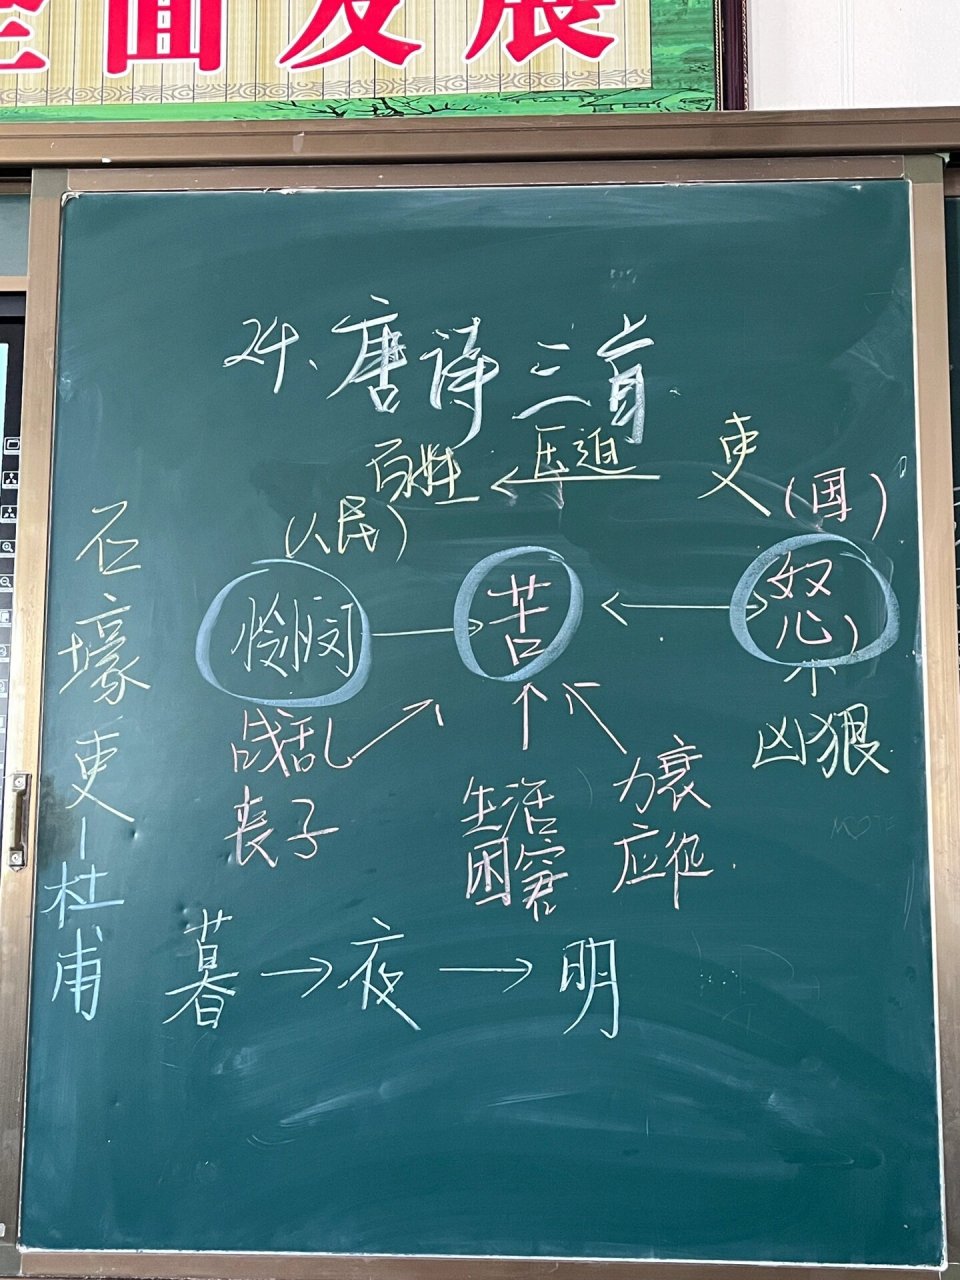 全面发展
24.唐诗三首
百姓 ← 压迫 吏
(人民) (国)
怜悯 → 苦 ←→ 怒
战乱 凶狠
丧子
生活
困窘
力衰
应征
暮→夜→明
石壕吏-杜甫